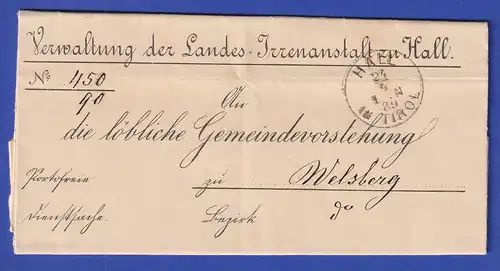 Verwaltung der Landes-Irrenanstalt zu Hall.
HALL
IN
TIROL
No 450
90
An
die löbliche Gemeindevorstehung
Portofreie zu Welsberg
Dienstsache. Bezirk do